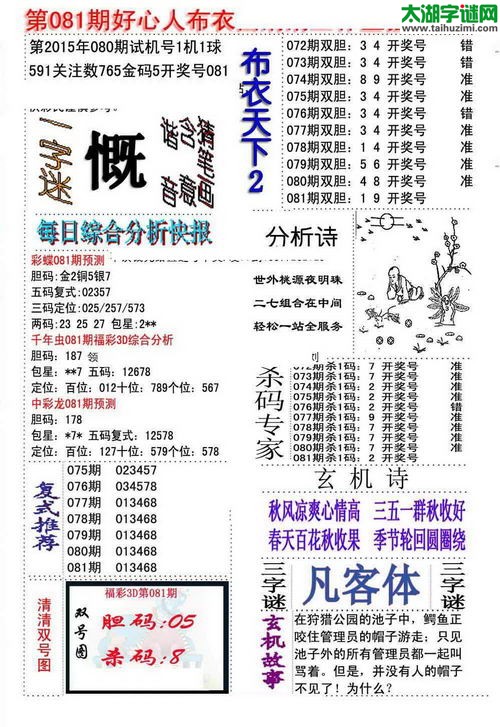 第081期好心人布衣
太湖字谜网
www.taihuzimi.com
第2015年080期试机号1机1球
591关注数765金码5开奖号081
布衣天下2
072期双胆: 3 4 开奖号 错
073期双胆: 3 4 开奖号 准
074期双胆: 8 9 开奖号 准
075期双胆: 3 4 开奖号 准
076期双胆: 3 4 开奖号 错
077期双胆: 3 4 开奖号 准
078期双胆: 1 4 开奖号 准
079期双胆: 5 6 开奖号 准
080期双胆: 4 8 开奖号 准
081期双胆: 1 9 开奖号
一字迷
慨
猜笔画
含意
谐音
每日综合分析快报
彩蝶081期预测
胆码:金2铜5银7
五码复式:02357
三码定位:025/257/573
两码: 23 25 27 包星:2**
千年虫081期福彩3D综合分析
胆码: 187 领
包星: **7 五码: 12678
定位: 百位: 012十位: 789个位: 567
中彩龙081期预测
胆码: 178
包星: *7* 五码: 12578
定位: 百位: 127十位: 579个位: 178
分析诗
世外桃源夜明珠
二七组合在中间
轻松一站全服务
杀码专家
072期杀1码: 7 开奖号 准
073期杀1码: 7 开奖号 准
074期杀1码: 2 开奖号 准
075期杀1码: 2 开奖号 准
076期杀1码: 2 开奖号 错
077期杀1码: 9 开奖号 准
078期杀1码: 2 开奖号 准
079期杀1码: 7 开奖号 准
080期杀1码: 2 开奖号 准
081期杀1码: 7 开奖号
复式推荐
075期 023457
076期 034578
077期 013468
078期 013468
079期 013468
080期 013468
081期 013468
玄机诗
秋风凉爽心情高 三五一群秋收好
春天百花秋收果 季节轮回圆圈绕
清清双号图
福彩3D第081期
双号图
胆码:05
杀码:8
三字谜
凡客体
三字谜
玄机故事
在狩猎公园的池子中,鳄鱼正
咬住管理员的帽子游走;只见
池子外的所有管理员都一起叫
骂着。但是,并没有人的帽子
不见了!为什么?